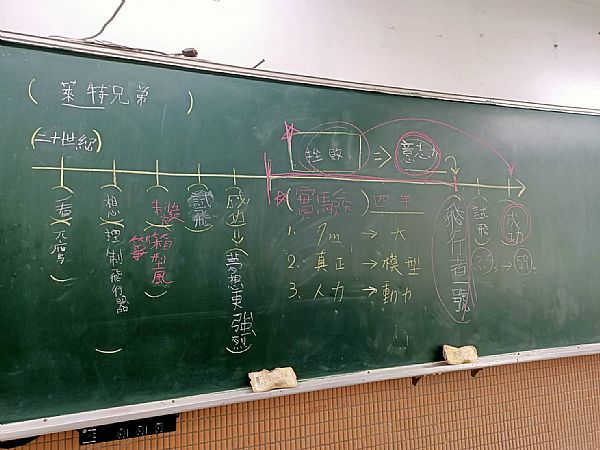 (萊特兄弟)
(二十世紀)
挫敗 ⇒ 意志力
(看
(想控制飛行器)
(製造
箏箱型風
(試飛)
(成功→夢想更強烈)
(實驗) 四年
1. 7m → 大
2. 真正 → 模型
3. 人力 → 動力
(飛行者一號)
(試飛)
(成功)
59s